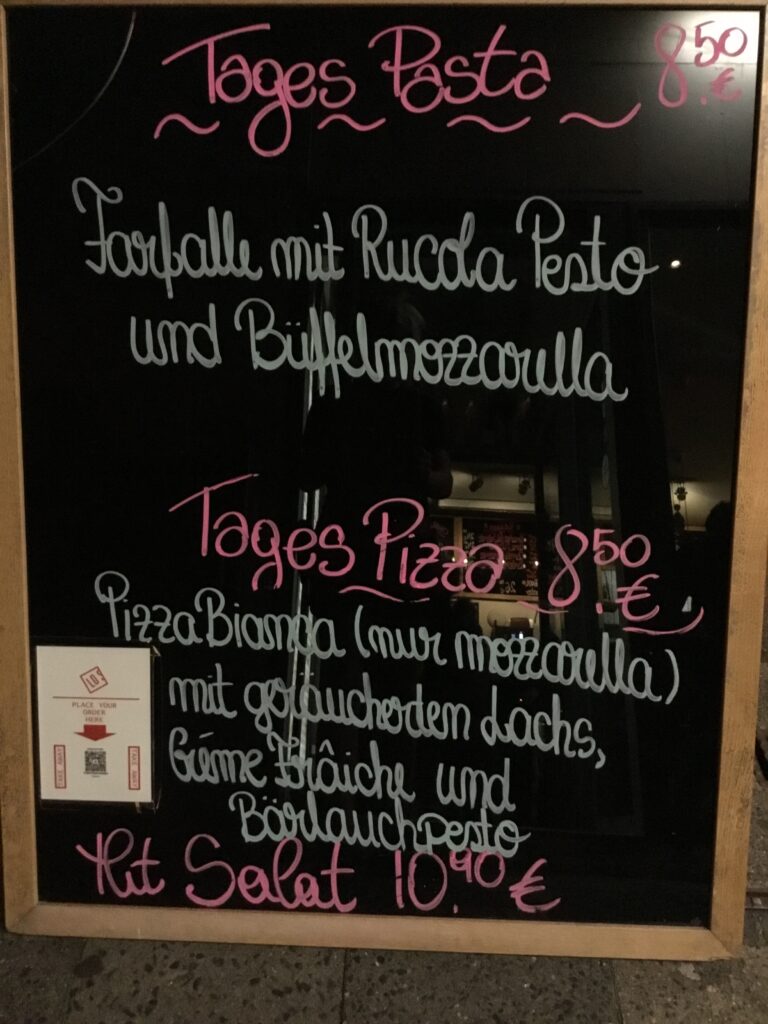 Tages Pasta 8.50 €
Farfalle mit Rucola Pesto
und Büffelmozzarella
Tages Pizza 8.50 €
Pizza Bianca (nur mozzarella)
mit geräucherten Lachs,
Créme Frâiche und
Bärlauchpesto
Mit Salat 10.90 €
PLACE YOUR
ORDER
HERE
TAKE AWAY